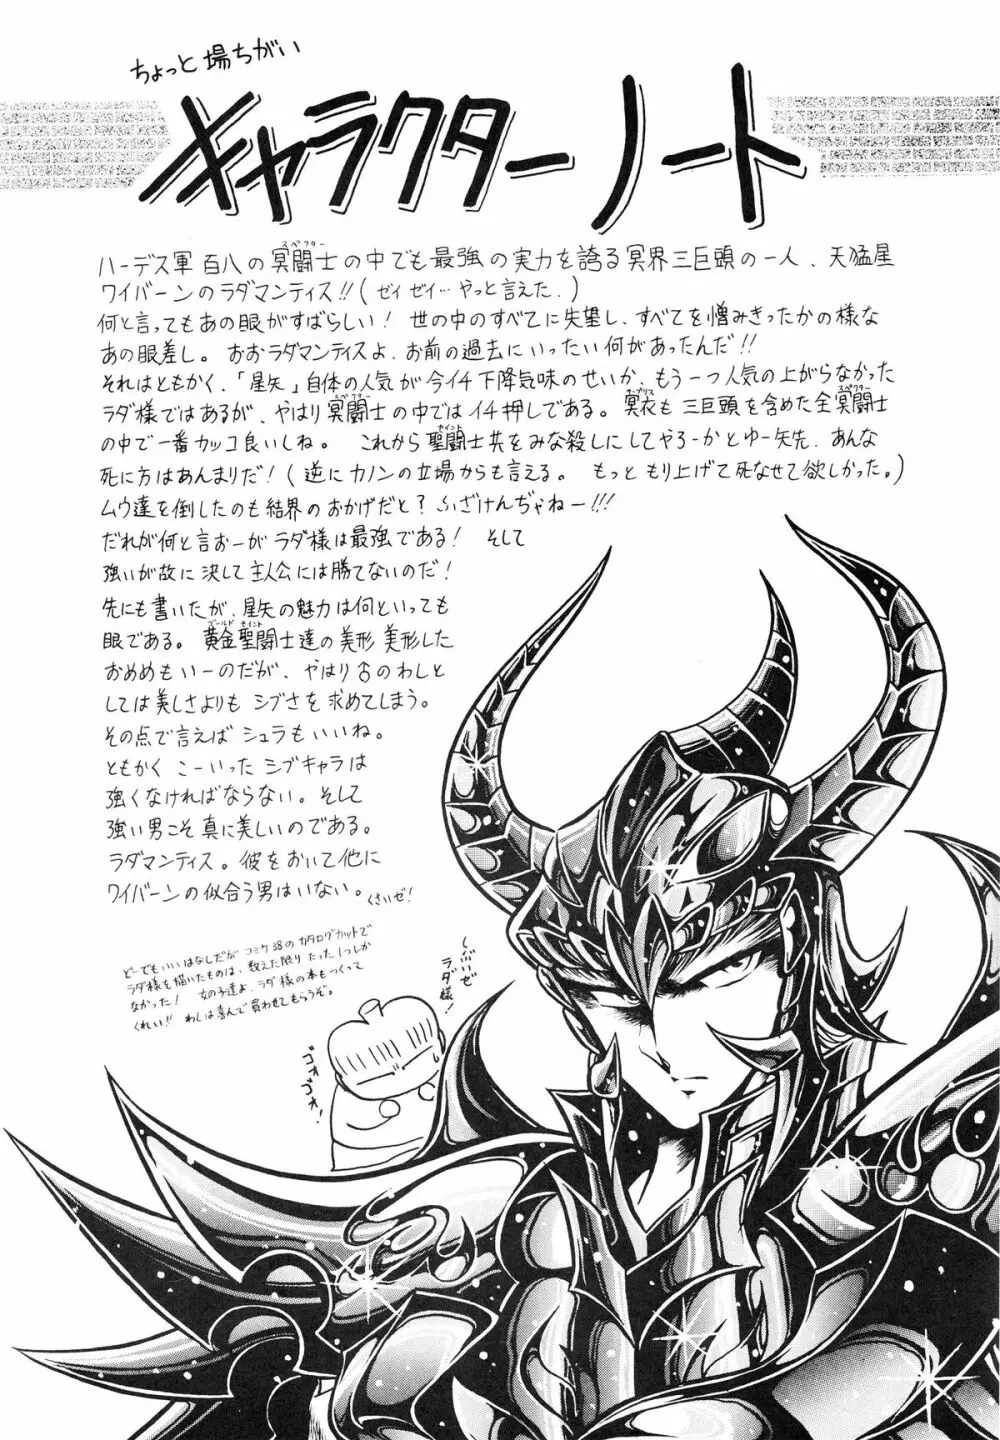 ちょっと場ちがい
キャラクターノート
スペクター
ハーデス軍 百八の冥闘士の中でも最強の実力を誇る冥界三巨頭の一人、天猛星
ワイバーンのラダマンティス!!(ゼイ ゼイ…やっと言えた。)
何と言ってもあの眼がすばらしい! 世の中のすべてに失望し、すべてを憎みきったかの様な
あの眼差し。 おおラダマンティスよ、お前の過去にいったい何があったんだ!!
それはともかく、「星矢」自体の人気が今イチ下降気味のせいか、もう一つ人気の上がらなかった
スペクター サープリス スペクター
ラダ様ではあるが、やはり冥闘士の中ではイチ押しである。冥衣も三巨頭を含めた全冥闘士
セイント
の中で一番カッコ良いしね。 これから聖闘士共をみな殺しにしてやろーかとゆー矢先、あんな
死に方はあんまりだ!(逆にカノンの立場からも言える。 もっともり上げて死なせて欲しかった。)
ムウ達を倒したのも結界のおかげだと? ふざけんぢゃねー!!!
だれが何と言おーがラダ様は最強である! そして
強いが故に決して主人公には勝てないのだ!
先にも書いたが、星矢の魅力は何といっても
ゴールド セイント
眼である。黄金聖闘士達の美形美形した
おめめもいーのだが、やはり古のわしと
しては美しさよりもシブさを求めてしまう。
その点で言えばシュラもいいね。
ともかくこーいったシブキャラは
強くなければならない。そして
強い男こそ真に美しいのである。
ラダマンティス。彼をおいて他に
ワイバーンの似合う男はいない。くさいぜ!
どーでもいいはなしだがコミケ38のカタログカットで
ラダ様を描いたものは、数えた限りたった1つしか
なかった! 女の子達よ、ラダ様の本もつくって
くれい!! わしは喜んで買わせてもらうぞ。
しぶいぜ
ラダ様!
ゴオゴオ!